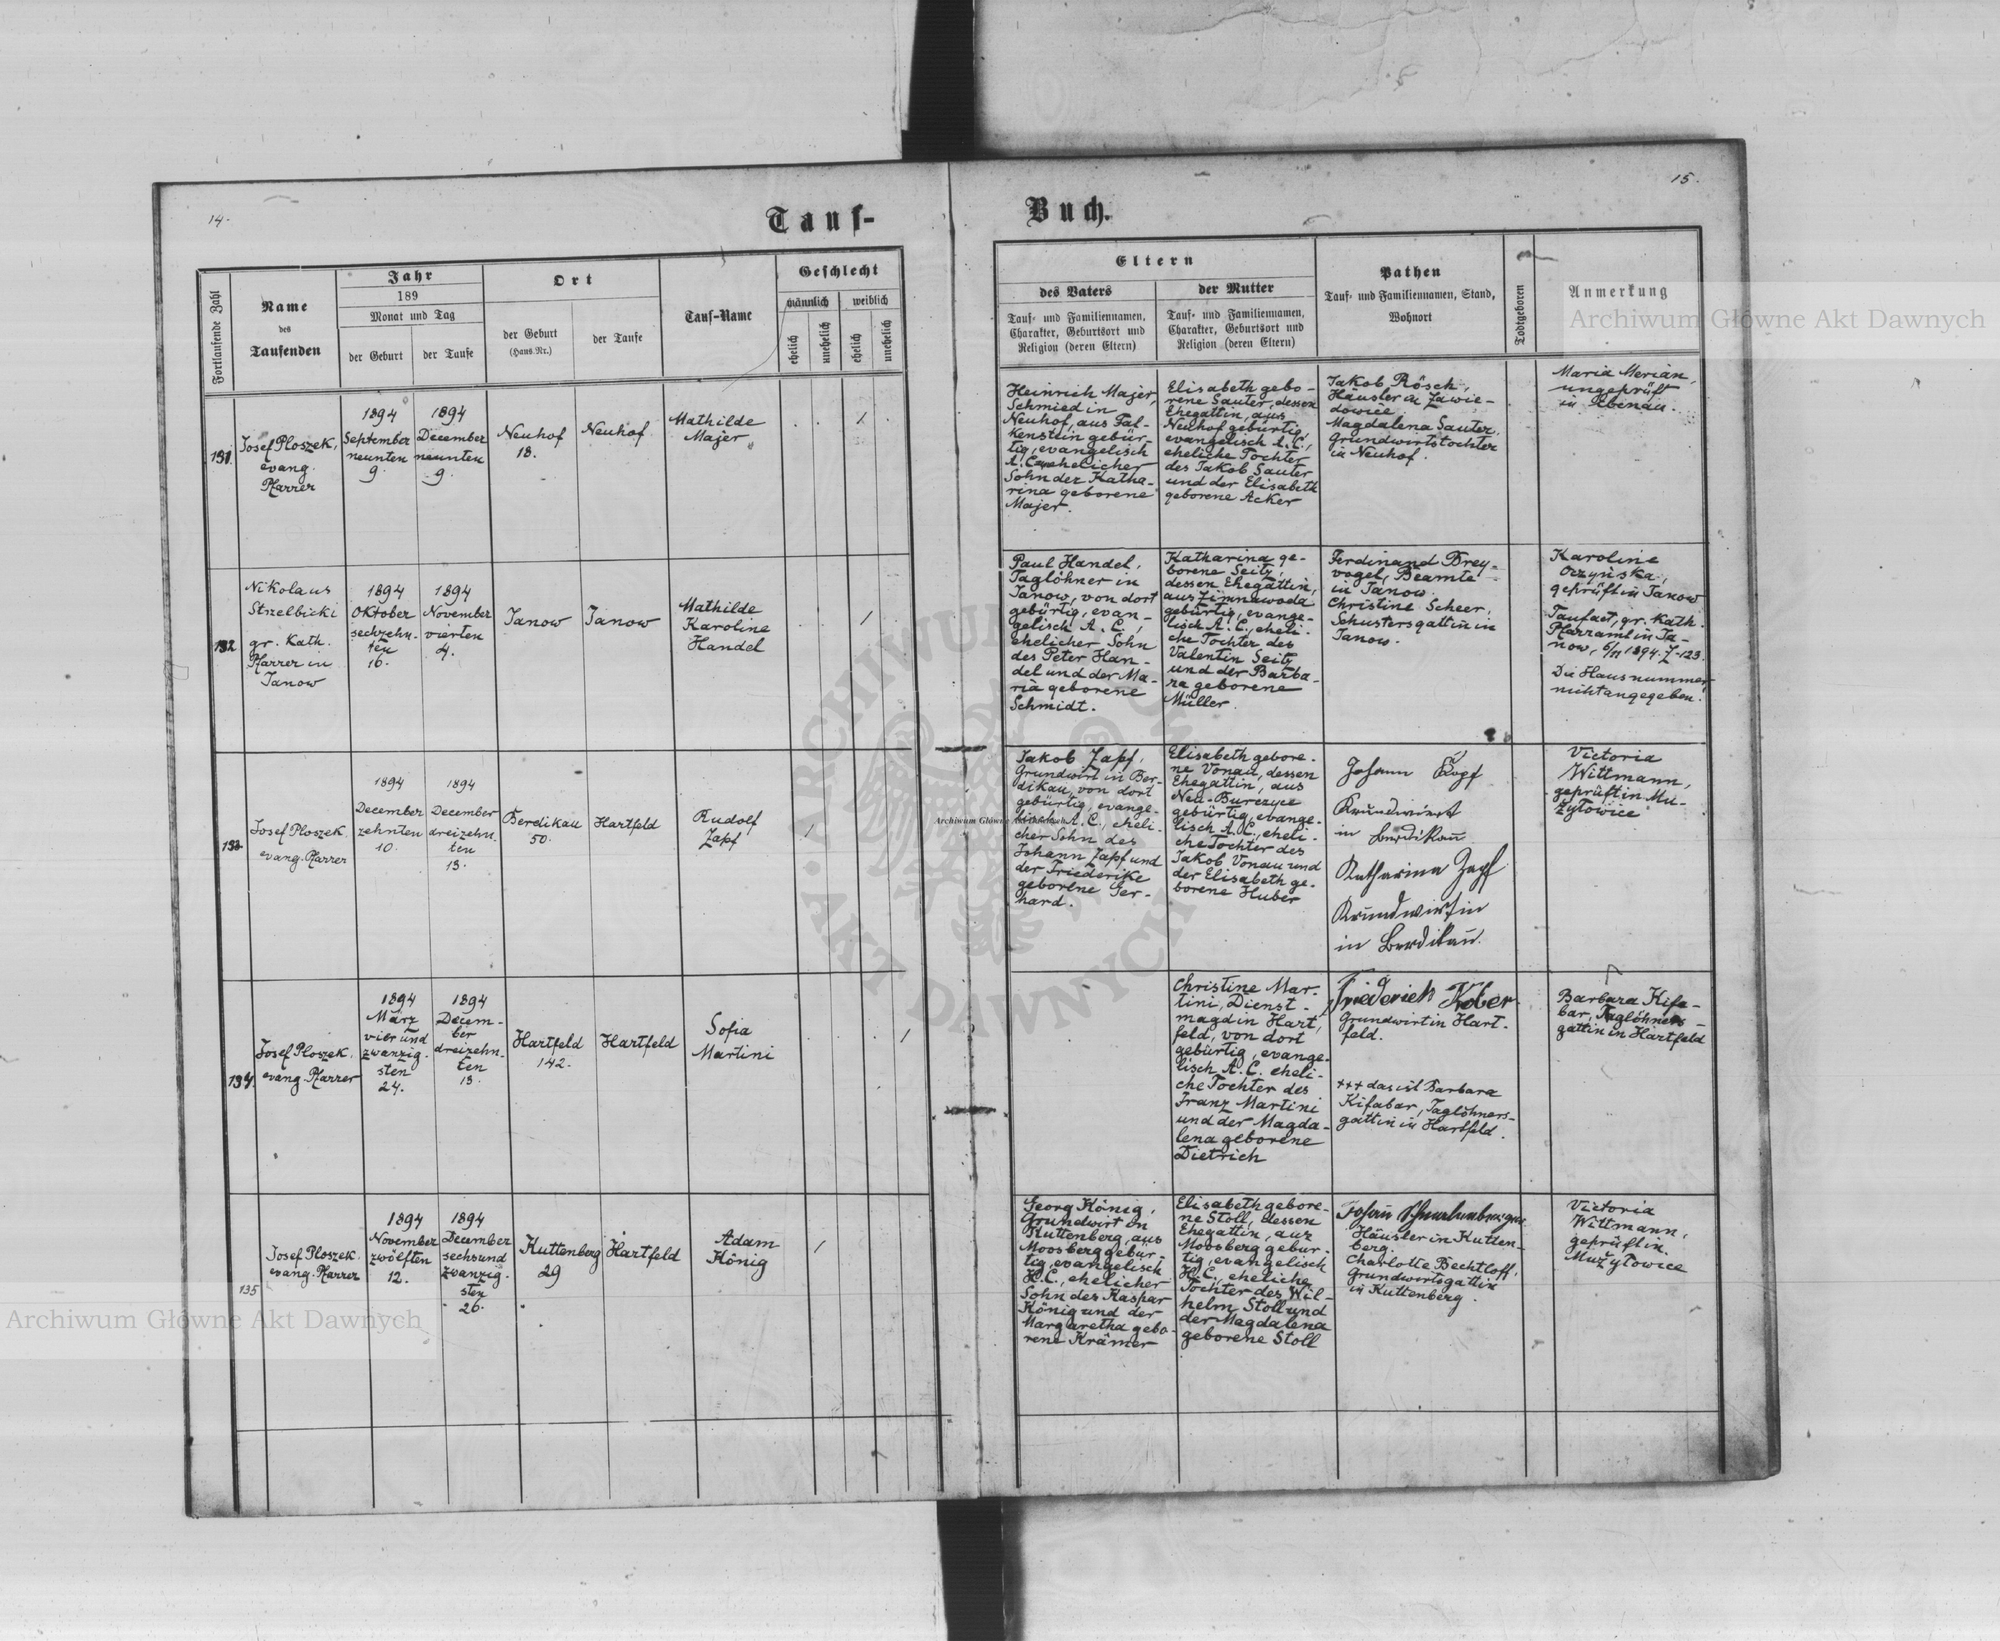 14.
Tauf-
Fortlaufende Zahl
Name
des
Taufenden
Jahr
189
Monat und Tag
der Geburt
der Taufe
Ort
der Geburt
(Haus-Nr.)
der Taufe
Tauf-Name
Geschlecht
männlich
weiblich
ehelich
unehelich
ehelich
unehelich
131.
Josef Ploszek,
evang.
Pfarrer
1894
September
neunten
9.
1894
December
neunten
9.
Neuhof
18.
Neuhof
Mathilde
Majer
1
132
Nikolaus
Strzelbicki
gr. Kath.
Pfarrer in
Janow
1894
Oktober
sechzehn-
ten
16.
1894
November
vierten
4.
Janow
Janow
Mathilde
Karoline
Handel
1
Josef Ploszek
evang. Pfarrer
1894
December
zehnten
10.
1894
December
dreizehn-
ten
13.
Berdikau
50.
Hartfeld
Rudolf
Zapf
1
134.
Josef Ploszek,
evang. Pfarrer
1894
März
vier und
zwanzig-
sten
24.
1894
Decem-
ber
dreizehn-
ten
13.
Hartfeld
142.
Hartfeld
Sofia
Martini
1
135
Josef Ploszek
evang. Pfarrer
1894
November
zwölften
12.
1894
December
sechsund
zwanzig-
sten
26.
Kuttenberg
29
Hartfeld
Adam
König
1
15.
Buch.
Eltern
des Vaters
Tauf- und Familiennamen,
Charakter, Geburtsort und
Religion (deren Eltern)
der Mutter
Tauf- und Familiennamen,
Charakter, Geburtsort und
Religion (deren Eltern)
Pathen
Tauf- und Familiennamen, Stand,
Wohnort
Todtgeboren
Anmerkung
Heinrich Majer,
Schmied in
Neuhof, aus Fal-
kenstein gebür-
tig, evangelisch
A. C. unehelicher
Sohn der Katha-
rina geborene
Majer.
Elisabeth gebo-
rene Sauter, dessen
Ehegattin, aus
Neuhof gebürtig,
evangelisch A. C.,
eheliche Tochter
des Jakob Sauter
und der Elisabeth
geborene Acker
Jakob Rösch,
Häusler in Zawie-
dowice
Magdalena Sauter,
Grundwirtstochter
in Neuhof.
Maria Merian,
ungeprüft
in Ebenau.
Paul Handel,
Taglöhner in
Janow, von dort
gebürtig, evan-
gelisch A. C.,
ehelicher Sohn
des Peter Han-
del und der Ma-
ria geborene
Schmidt.
Katharina ge-
borene Seitz,
dessen Ehegattin,
aus Zimnawoda
gebürtig, evange-
lisch A. C., eheli-
che Tochter des
Valentin Seitz
und der Barba-
ra geborene
Müller.
Ferdinand Brey-
vogel, Beamte
in Janow.
Christine Scheer,
Schustersgattin in
Janow.
Karoline
Oczyńska,
geprüft in Janow
Taufact, gr. Kath.
Pfarramt in Ja-
now, 6/11 1894. Z-123.
Die Hausnummer
nicht angegeben.
Jakob Zapf,
Grundwirt in Ber-
dikau, von dort
gebürtig, evange-
lisch A. C., eheli-
cher Sohn des
Johann Zapf und
der Friederike
geborene Ger-
hard.
Elisabeth gebore-
ne Vonau, dessen
Ehegattin, aus
Neu-Burczyce
gebürtig, evange-
lisch A. C., eheli-
che Tochter des
Jakob Vonau und
der Elisabeth ge-
borene Huber
Johann
Grundwirt
in Berdikau
Katharina Zapf
Grundwirtin
in Berdikau.
Victoria
Wittmann,
geprüft in Mu-
żyłowice
Christine Mar-
tini, Dienst-
magd in Hart-
feld, von dort
gebürtig, evange-
lisch A. C. eheli-
che Tochter des
Franz Martini
und der Magda-
lena geborene
Dietrich
Friederich Kober
Grundwirt in Hart-
feld.
+++ das ist Barbara
Kifabar, Taglöhners-
gattin in Hartfeld.
Barbara Kifa-
bar, Taglöhners-
gattin in Hartfeld
Georg König,
Grundwirt in
Kuttenberg, aus
Moosberg gebür-
tig, evangelisch
H. C., ehelicher
Sohn des Kaspar
König und der
Margaretha gebo-
rene Krämer
Elisabeth gebore-
ne Stoll, dessen
Ehegattin, aus
Moosberg gebür-
tig, evangelisch
H. C., eheliche
Tochter des Wil-
helm Stoll und
der Magdalena
geborene Stoll
Johann
Häusler in Kutten-
berg.
Charlotte Bechtloff,
Grundwirtsgattin
in Kuttenberg.
Victoria
Wittmann,
geprüft in
Mużyłowice
Archiwum Główne Akt Dawnych
Archiwum Główne Akt Dawnych
ARCHIWUM
AKT DAWNYCH